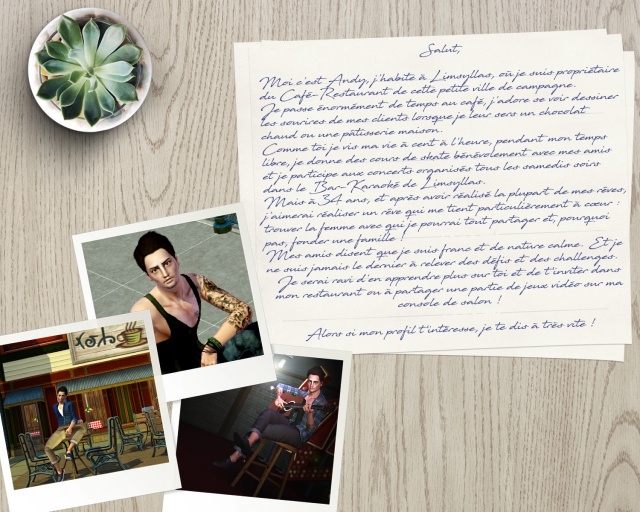 Salut,
Moi c'est Andy, j'habite à Limsyllas, où je suis propriétaire
du Café-Restaurant de cette petite ville de campagne.
Je passe énormément de temps au café, j'adore se voir dessiner
les sourires de mes clients lorsque je leur sers un chocolat
chaud ou une pâtisserie maison.
Comme toi je vis ma vie à cent à l'heure, pendant mon temps
libre, je donne des cours de skate bénévolement avec mes amis
et je participe aux concerts organisés tous les samedis soirs
dans le Bar-Karaoké de Limsyllas.
Mais à 34 ans, et après avoir réalisé la plupart de mes rêves,
j'aimerai réaliser un rêve qui me tient particulièrement à cœur :
trouver la femme avec qui je pourrai tout partager et, pourquoi
pas, fonder une famille !
Mes amis disent que je suis franc et de nature calme. Et je
ne suis jamais le dernier à relever des défis et des challenges.
Je serai ravi d'en apprendre plus sur toi et de t'inviter dans
mon restaurant ou à partager une partie de jeux vidéo sur ma
console de salon !
Alors si mon profil t'intéresse, je te dis à très vite !